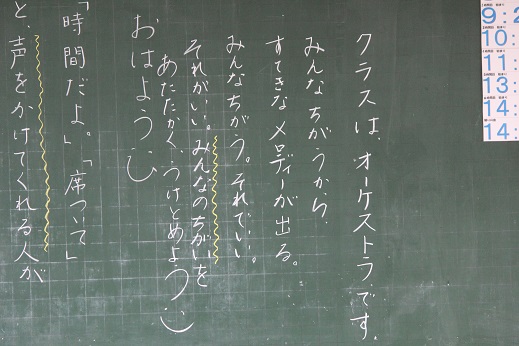 9:2
10:
11:
13:
14:
14:
クラスは、オーケストラです。
みんなちがうから、
すてきなメロディーが出る。
みんなちがう。それでいい。
それがいい。みんなのちがいを
あたたかく、うけとめよう
おはよう
「時間だよ。」「席ついて」
と、声をかけてくれる人が